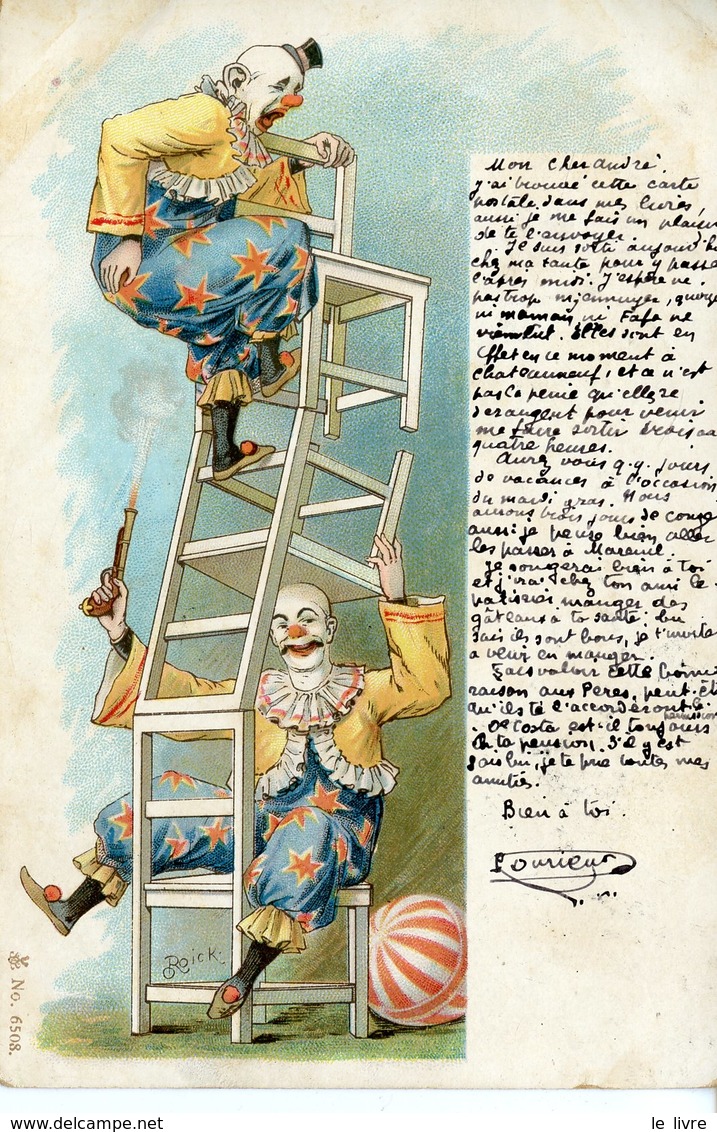 Mon cher andré,
j'ai trouvé cette carte
postale dans mes livres,
aussi je me fais un plaisir
de te l'envoyer.
Je suis sorti aujourd'hu
chez ma tante pour y passe
l'après midi. J'espère ne
pas trop m'ennuyer, quoiqu
ni maman, ni Fafa ne
viendront. Elles sont en
effet en ce moment à
chateauneuf, et ce n'est
pas la peine qu'elles se
dérangent pour venir
me faire sortir trois ou
quatre heures.
Aurez vous q.q. jours
de vacances à l'occasion
du mardi gras. Nous
aurons trois jours de congé
aussi je pense bien aller
les passer à Mareuil.
Je songerai bien à toi
et j'irai chez ton ami le
patissier manger des
gâteaux à ta santé; tu
sais ils sont bons, je t'invite
à venir en manger.
Fais valoir cette bonne
raison aux Pères, peut-êt
qu'ils te l'accorderont la
permission
Da Costa est-il toujours
à ta pension. S'il y est
dis lui, je te prie toutes mes
amitiés.
Bien à toi.
Roick.
No. 6508.
le livre